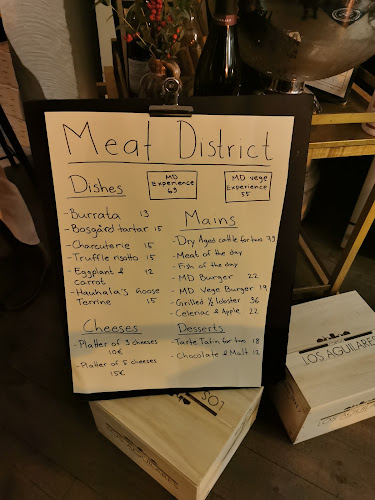 Meat District
Dishes
MD
Experience
69
MD vege
Experience
55
- Burrata 13
- Bosgård tartar 15
- Charcuterie 15
- Truffle risotto 15
- Eggplant & 12
carrot
- Hauhala's Goose
Terrine 15
Mains
- Dry Aged cattle for two 79
- Meat of the day
- Fish of the day
- MD Burger 22
- MD Vege Burger 19
- Grilled ½ lobster 36
- Celeriac & Apple 22
Cheeses
- Platter of 3 cheeses
10€
- Platter of 5 cheeses
15€
Desserts
- Tarte Tatin for two 18
- Chocolate & Malt 12
LOS AGUILARES
LOS